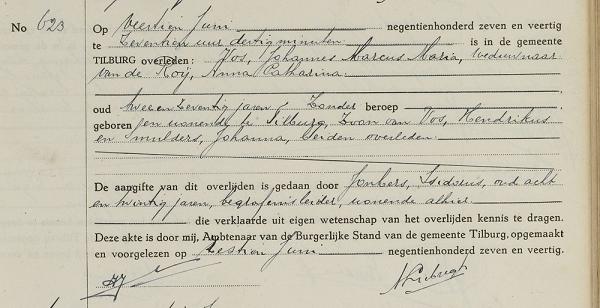 No 623
Op veertien Juni negentienhonderd zeven en veertig
te zeventien uur dertig minuten is in de gemeente
TILBURG overleden: Vos, Johannes Marcus Maria, weduwnaar
van de Roij, Anna Catharina.
oud twee en zeventig jaren, zonder beroep
geboren en wonende te Tilburg, zoon van Vos, Hendrikus
en Mulders, Johanna, beiden overleden.
De aangifte van dit overlijden is gedaan door Jonkers, Isidorus, oud acht
en twintig jaren, begrafenisleider, wonende alhier.
die verklaarde uit eigen wetenschap van het overlijden kennis te dragen.
Deze akte is door mij, Ambtenaar van de Burgerlijke Stand van de gemeente Tilburg, opgemaakt
en voorgelezen op zestien Juni negentienhonderd zeven en veertig.